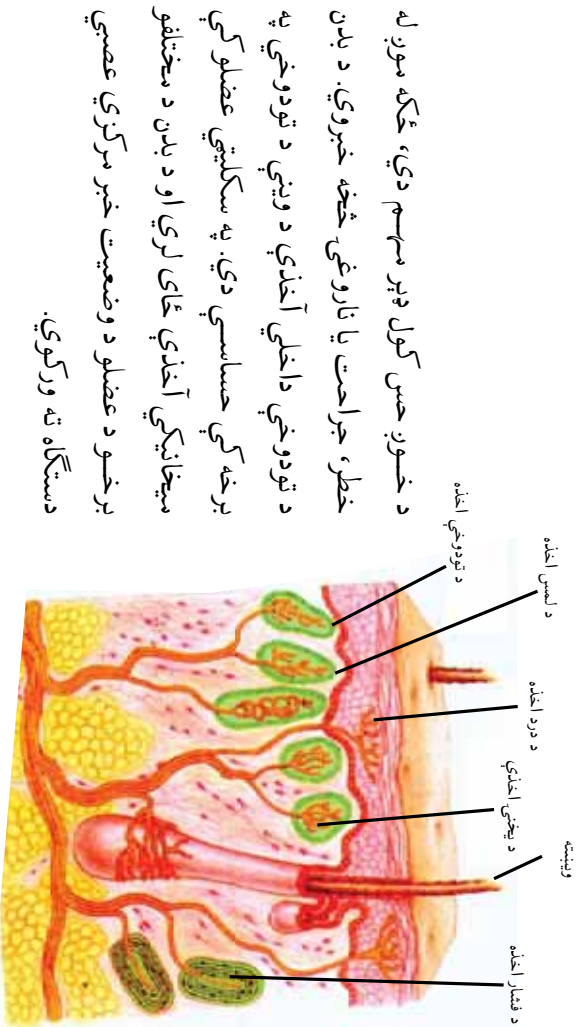 د خوږ حس کول ډېر مهم دي، ځکه موږ له
خطر، جراحت يا ناروغۍ څخه خبروي. د بدن
د تودوخې داخلي آخذې د وينې د تودوخې په
برخه کې حساسې دي. په سکليټي عضلو کې
ميخانيکي آخذې ځای لري او د بدن د مختلفو
برخو د عضلو د وضعيت خبر مرکزي عصبي
دستګاه ته ورکوي.
د تودوخې اخذه
د لمس اخذه
د درد اخذه
د يخنۍ اخذې
ويښته
د فشار اخذه